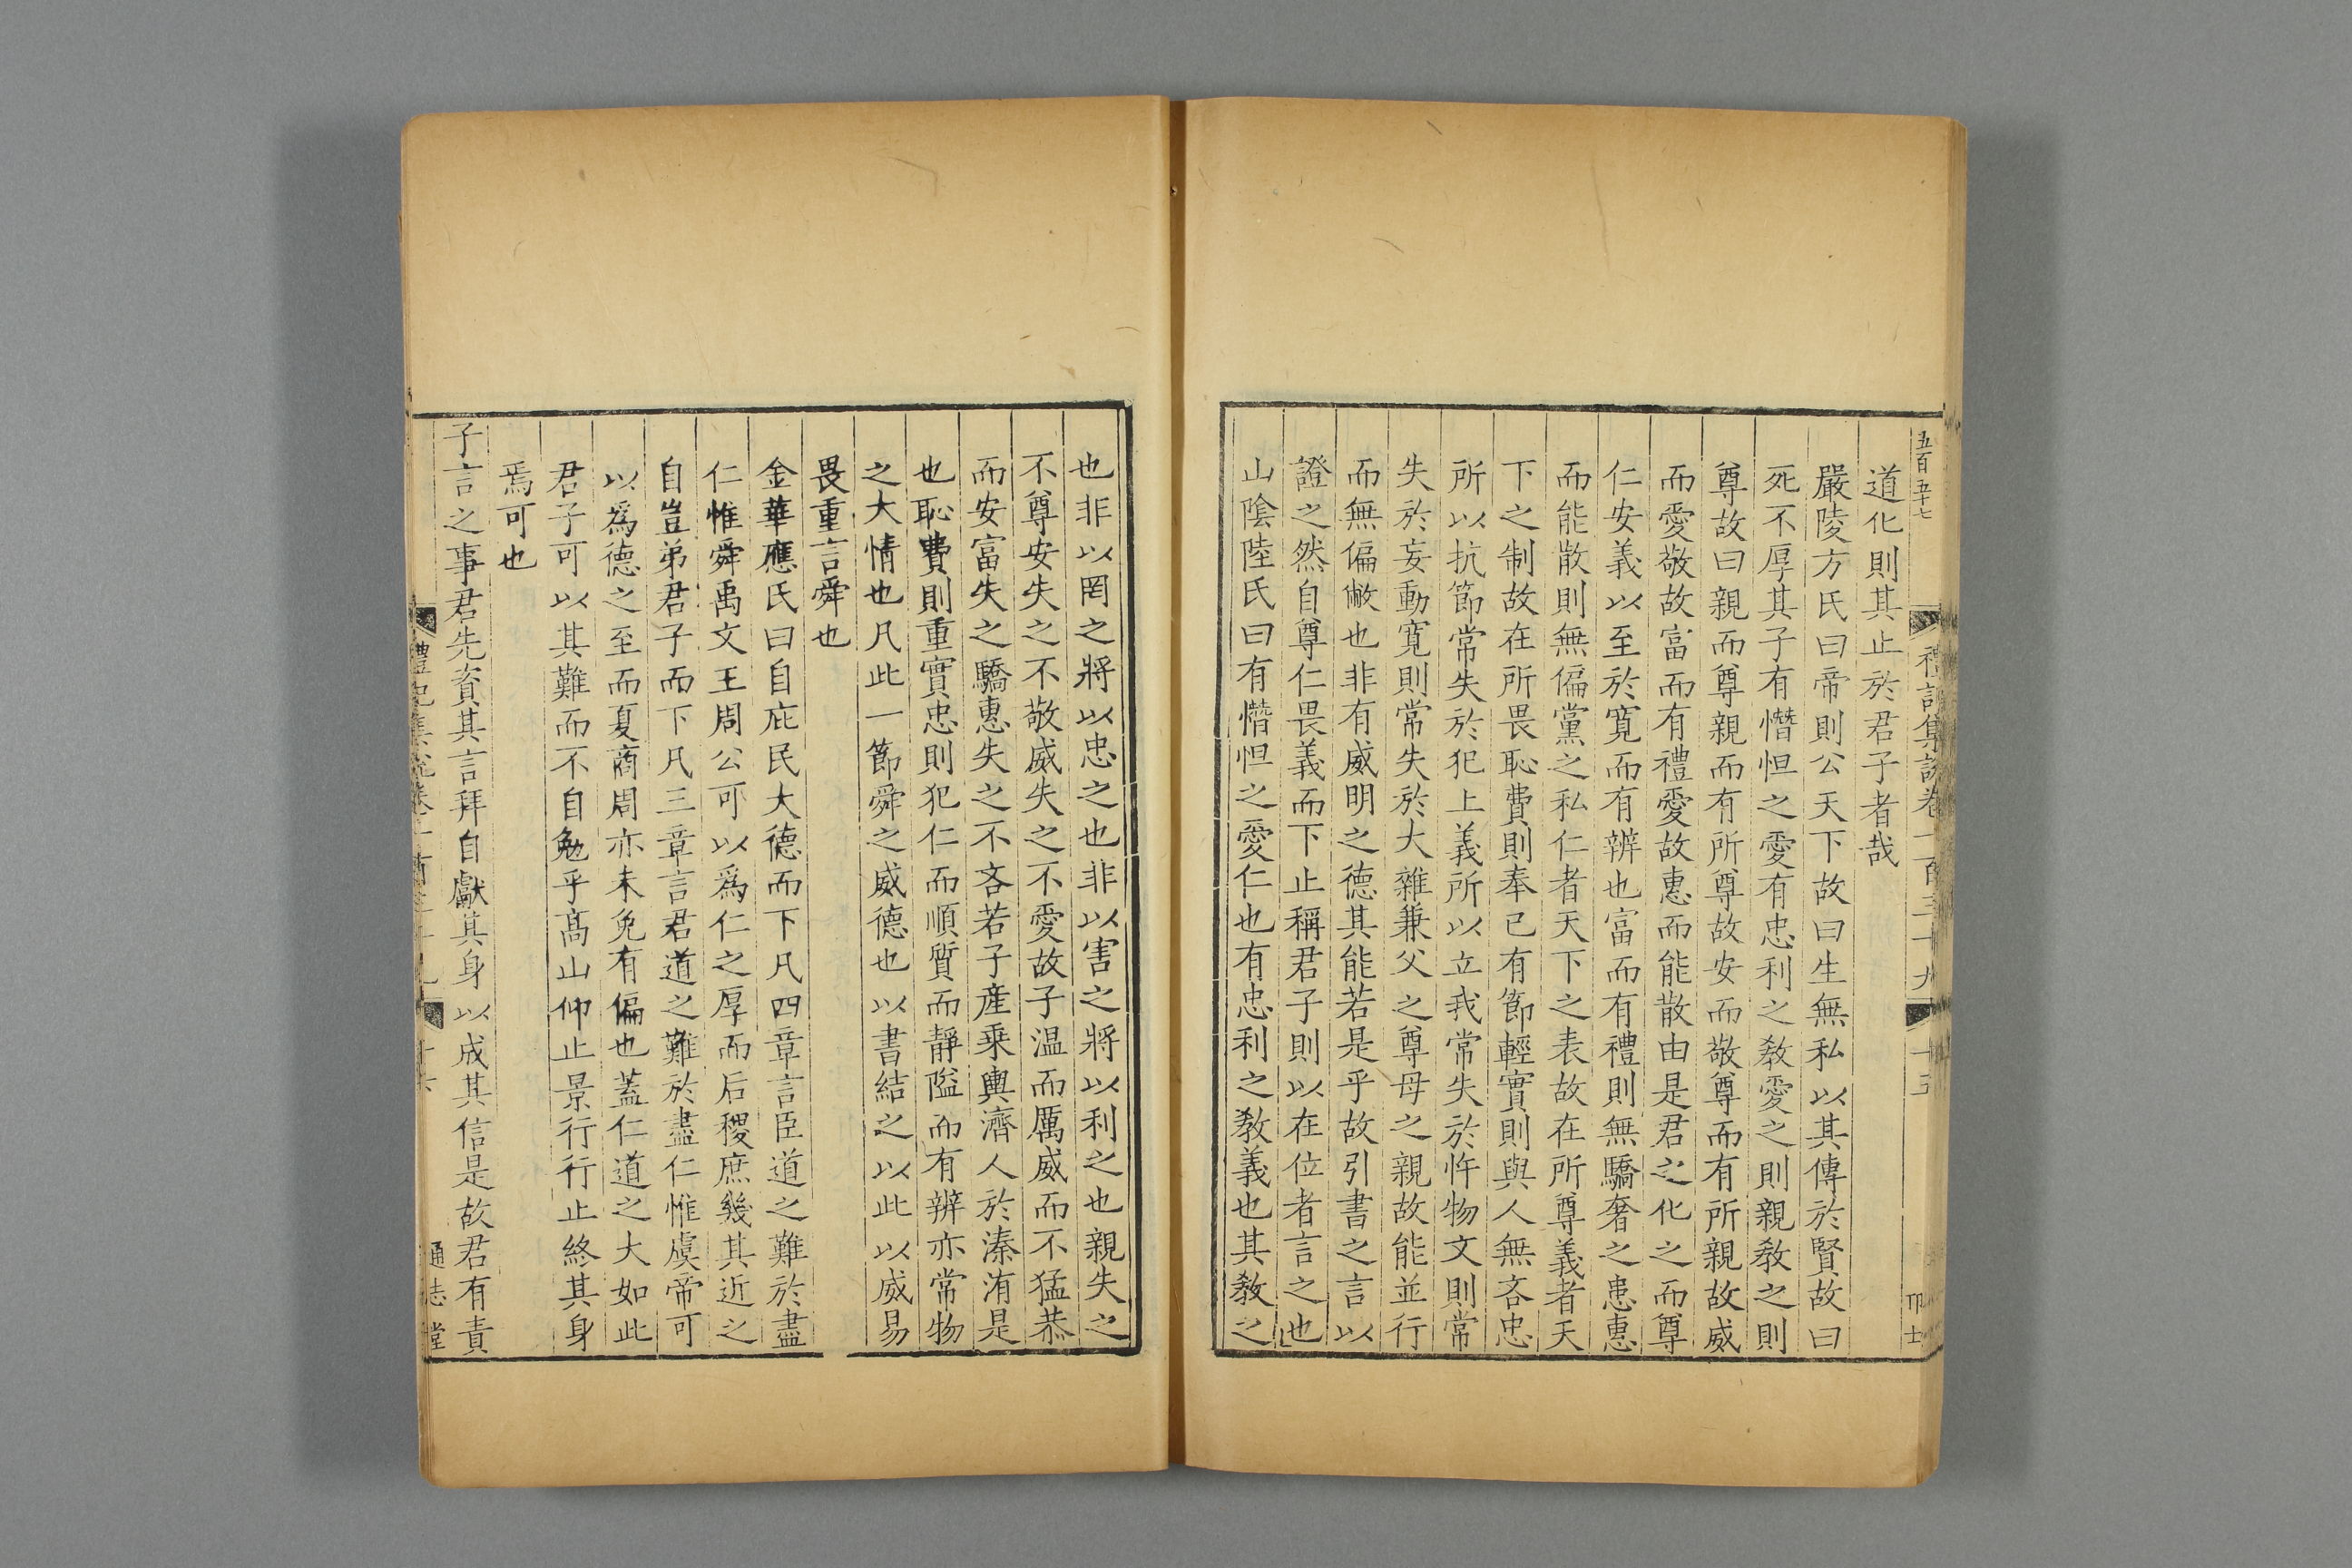 五百五十七
禮記集說卷一百三十九
道化則其止於君子者哉
嚴陵方氏曰帝則公天下故曰生無私以其傳於賢故曰
死不厚其子有憯怛之愛有忠利之敎愛之則親敎之則
尊故曰親而尊親而有所尊故安而敬尊而有所親故威
而愛敬故富而有禮愛故惠而能散由是君之化之而尊
仁安義以至於寬而有辨也富而有禮則無驕奢之患惠
而能散則無偏黨之私仁者天下之表故在所尊義者天
下之制故在所畏恥費則奉已有節輕實則與人無吝忠
所以抗節常失於犯上義所以立我常失於忤物文則常
失於妄動寬則常失於大雜兼父之尊母之親故能並行
而無偏敝也非有威明之德其能若是乎故引書之言以
證之然自尊仁畏義而下止稱君子則以在位者言之也
山陰陸氏曰有憯怛之愛仁也有忠利之敎義也其敎之
也非以罔之將以忠之也非以害之將以利之也親失之
不尊安失之不敬威失之不愛故子温而厲威而不猛恭
而安富失之驕惠失之不吝若子產乗輿濟人於溱洧是
也恥費則重實忠則犯仁而順質而靜隘而有辨亦常物
之大情也凡此一節舜之威德也以書結之以此以威易
畏重言舜也
金華應氏曰自庇民大德而下凡四章言臣道之難於盡
仁惟舜禹文王周公可以爲仁之厚而后稷庶幾其近之
自豈弟君子而下凡三章言君道之難於盡仁惟虞帝可
以爲德之至而夏商周亦未免有偏也蓋仁道之大如此
君子可以其難而不自勉乎高山仰止景行行止終其身
焉可也
子言之事君先資其言拜自獻其身以成其信是故君有責
禮記集說卷一百三十九
十六
通志堂